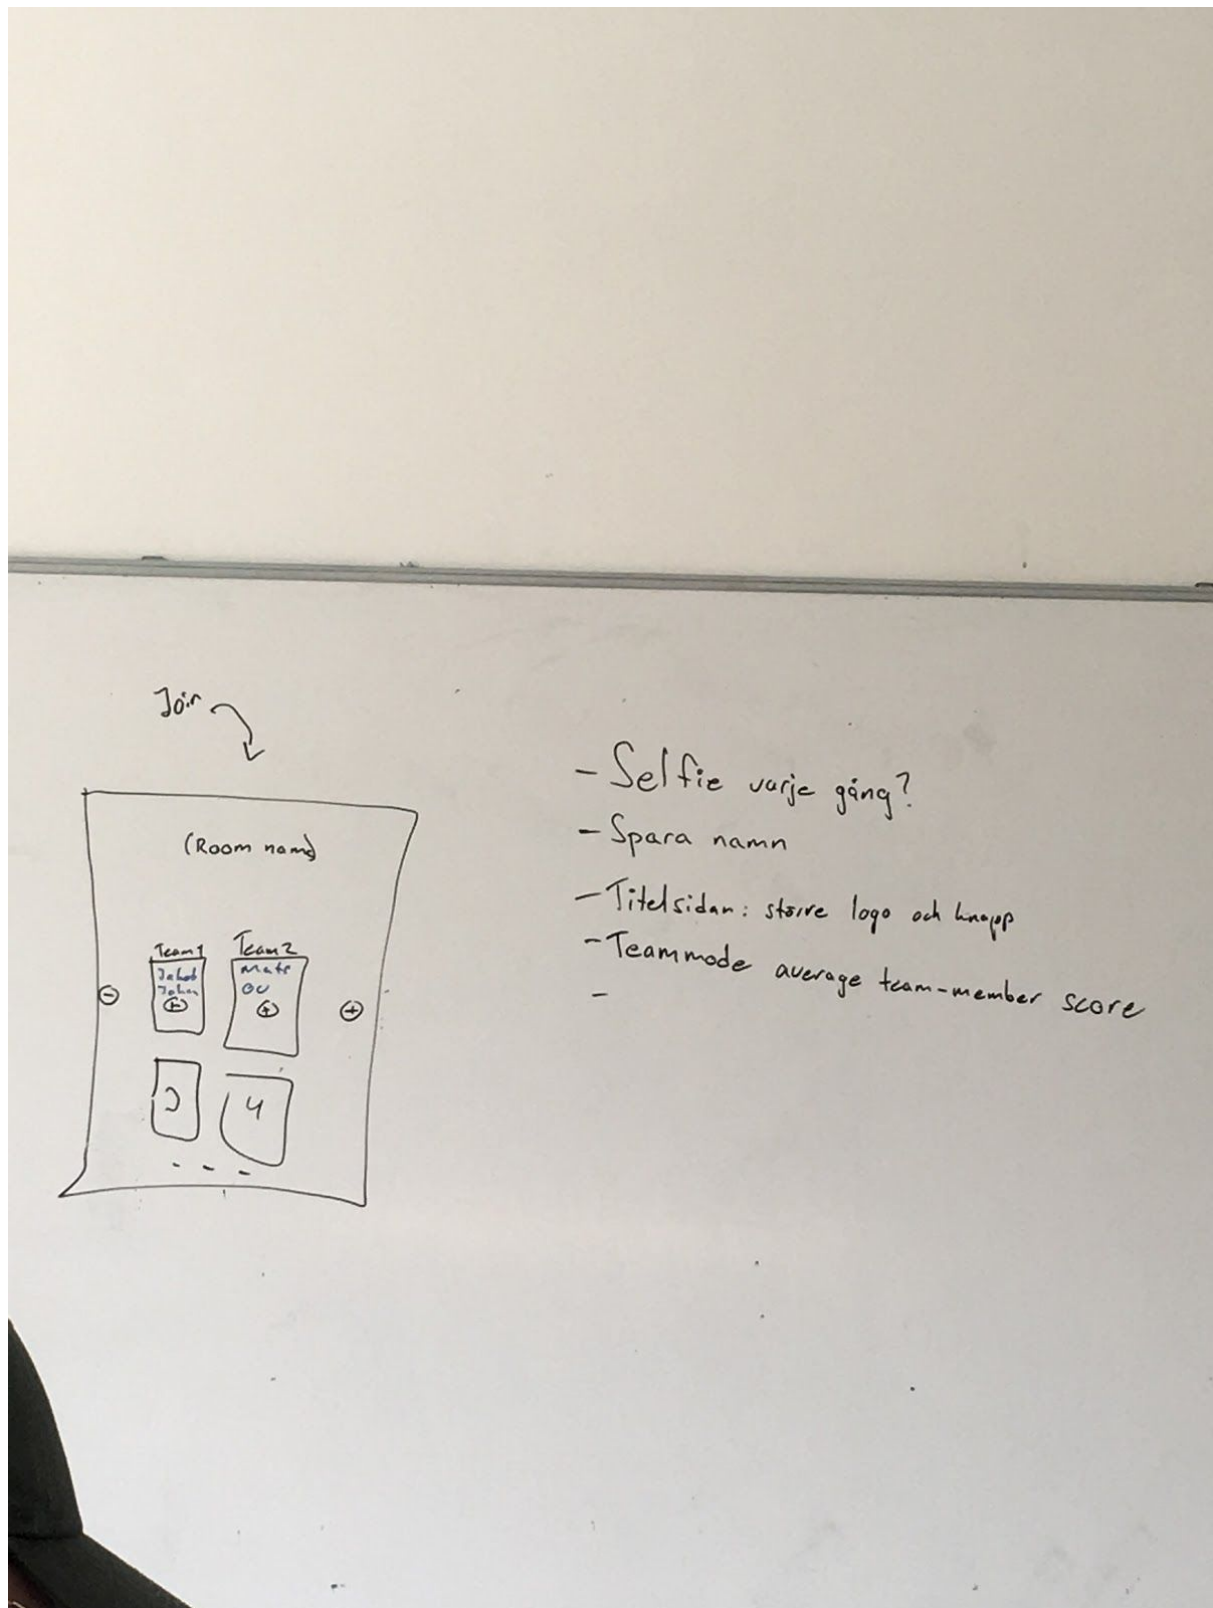 Join
(Room name)
Team 1
Team 2
Jakob
Johan
Mats
+
+
-
+
3
4
- - -
- Selfie varje gång?
- Spara namn
- Titelsidan: större logo och knapp
- Teammode average team-member score
-